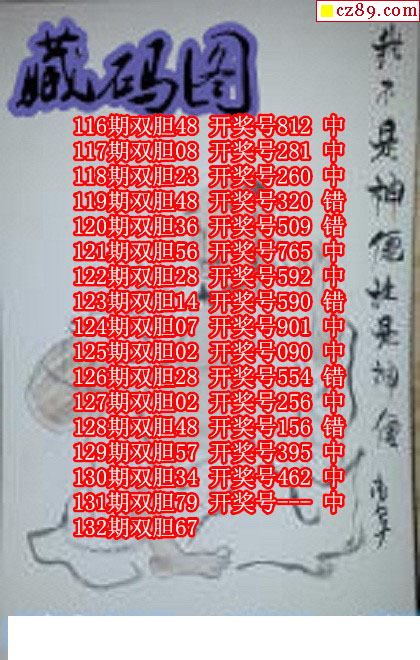 cz89.com
藏码图
116期双胆48 开奖号812 中
117期双胆08 开奖号281 中
118期双胆23 开奖号260 中
119期双胆48 开奖号320 错
120期双胆36 开奖号509 错
121期双胆56 开奖号765 中
122期双胆28 开奖号592 中
123期双胆14 开奖号590 错
124期双胆07 开奖号901 中
125期双胆02 开奖号090 中
126期双胆28 开奖号554 错
127期双胆02 开奖号256 中
128期双胆48 开奖号156 错
129期双胆57 开奖号395 中
130期双胆34 开奖号462 中
131期双胆79 开奖号--- 中
132期双胆67
我不是神仙
是神仙